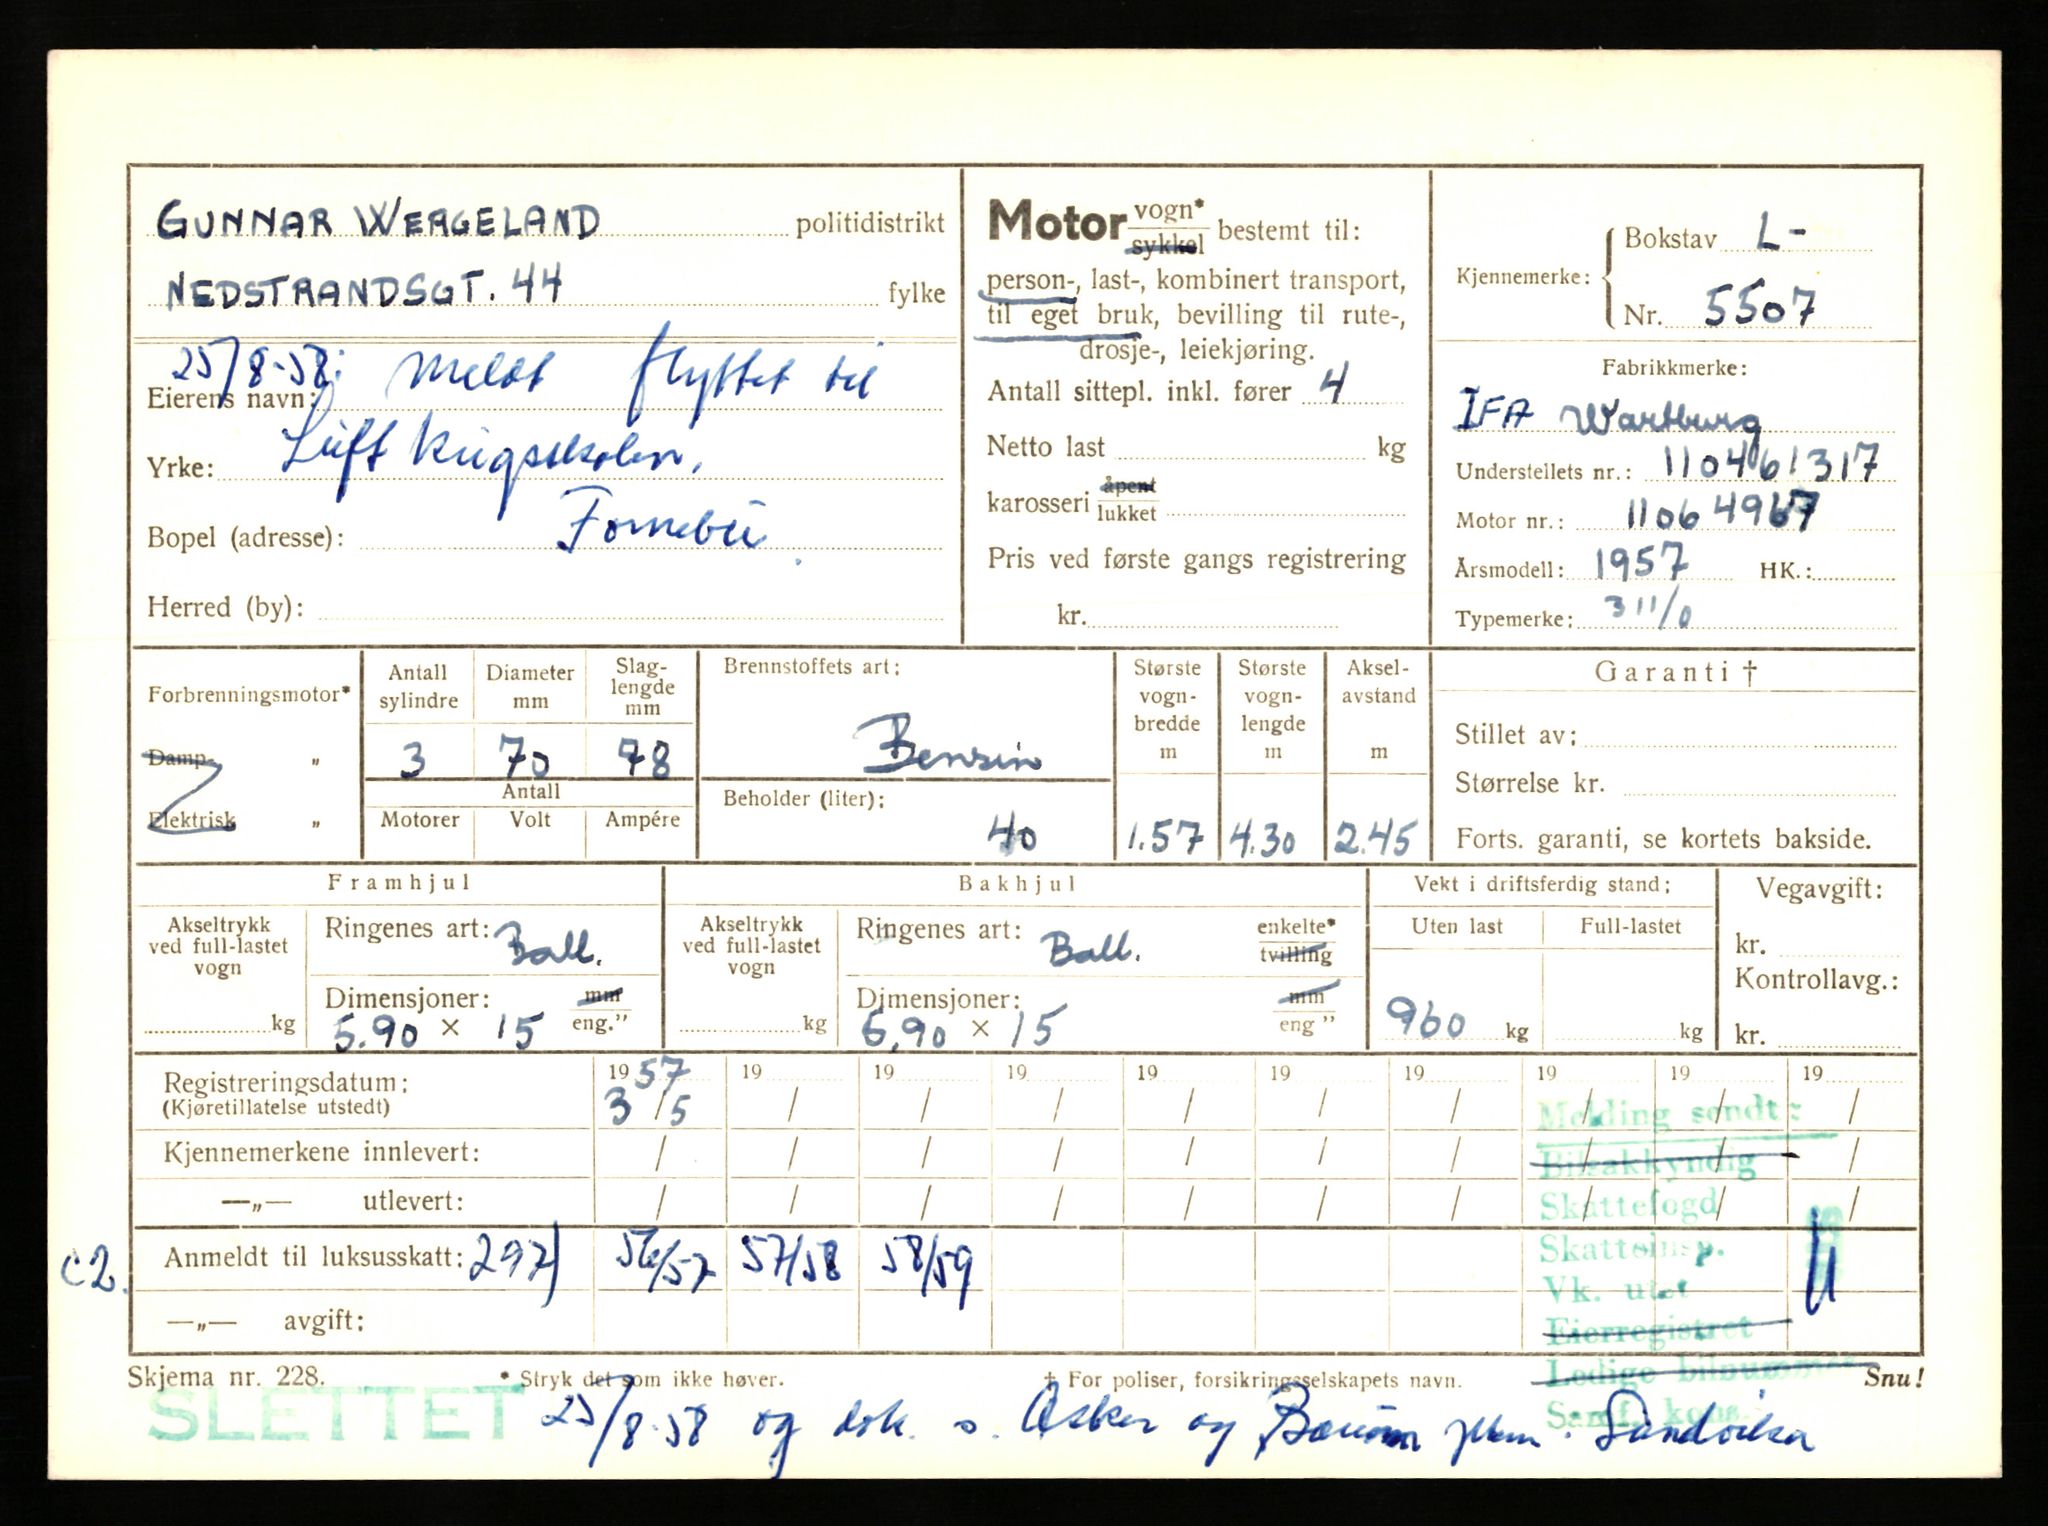 GUNNAR WERGELAND politidistrikt
NEDSTRANDSGT. 44 fylke
25/8-58: Meldt flyttet til
Eierens navn:
Luftkrigsskolen,
Yrke:
Fornebu
Bopel (adresse):
Herred (by):
Motor vogn*
sykkel
bestemt til:
person-, last-, kombinert transport,
til eget bruk, bevilling til rute-,
drosje-, leiekjøring.
Antall sittepl. inkl. fører 4
Netto last kg
karosseri åpent
lukket
Pris ved første gangs registrering
kr.
Kjennemerke: Bokstav L-
Nr. 5507
Fabrikkmerke:
IFA Wartburg
Understellets nr.: 110461317
Motor nr.: 11064967
Årsmodell: 1957 HK.:
Typemerke: 311/0
Forbrenningsmotor*
Damp- „
Elektrisk „
Antall sylindre Diameter mm Slag-lengde mm
3 70 78
Antall
Motorer Volt Ampére
Brennstoffets art:
Bensin
Beholder (liter):
40
Største vogn-bredde m
1.57
Største vogn-lengde m
4.30
Aksel-avstand m
2.45
Garanti †
Stillet av:
Størrelse kr.
Forts. garanti, se kortets bakside.
Framhjul
Akseltrykk ved full-lastet vogn
kg
Ringenes art: Ball.
Dimensjoner: mm
5.90 × 15 eng.”
Bakhjul
Akseltrykk ved full-lastet vogn
kg
Ringenes art: Ball. enkelte*
tvilling
Dimensjoner: mm
5,90 × 15 eng ”
Vekt i driftsferdig stand:
Uten last Full-lastet
960 kg kg
Vegavgift:
kr.
Kontrollavg.:
kr.
Registreringsdatum: 1957 19 19 19 19 19 19 19 19 19
(Kjøretillatelse utstedt) 3/5 / / / / / / / / /
Kjennemerkene innlevert: / / / / / / / / / /
—„— utlevert: / / / / / / / / / /
c2. Anmeldt til luksusskatt: 297) 56/57 57/58 58/59
—„— avgift:
Melding sendt:
Bilsakkyndig
Skattefogd
Skatteinsp.
Vk. utst
Eierregistret
Ledige bilnummer
Samf. kons.
Skjema nr. 228. * Stryk det som ikke høver. † For poliser, forsikringsselskapets navn. Snu!
SLETTET 25/8-58 og dok. s. Asker og Bærum pkm. Sandvika